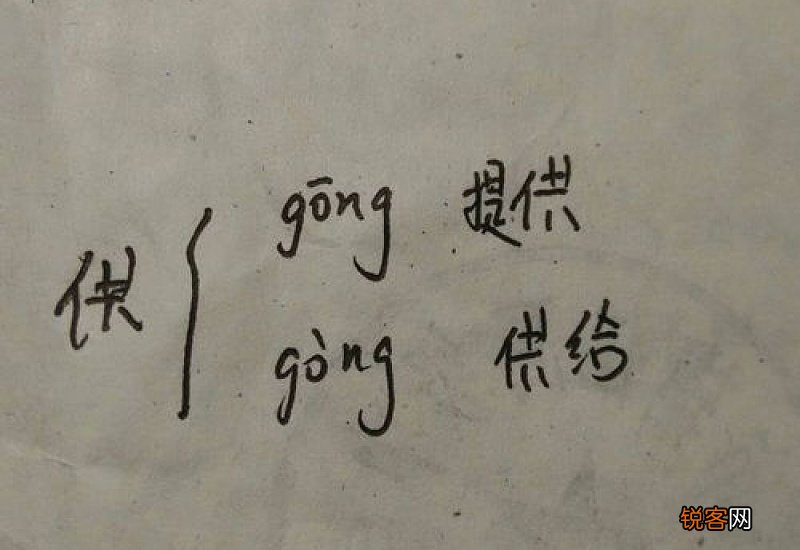 gōng 提供
供
gòng 供给
锐客网